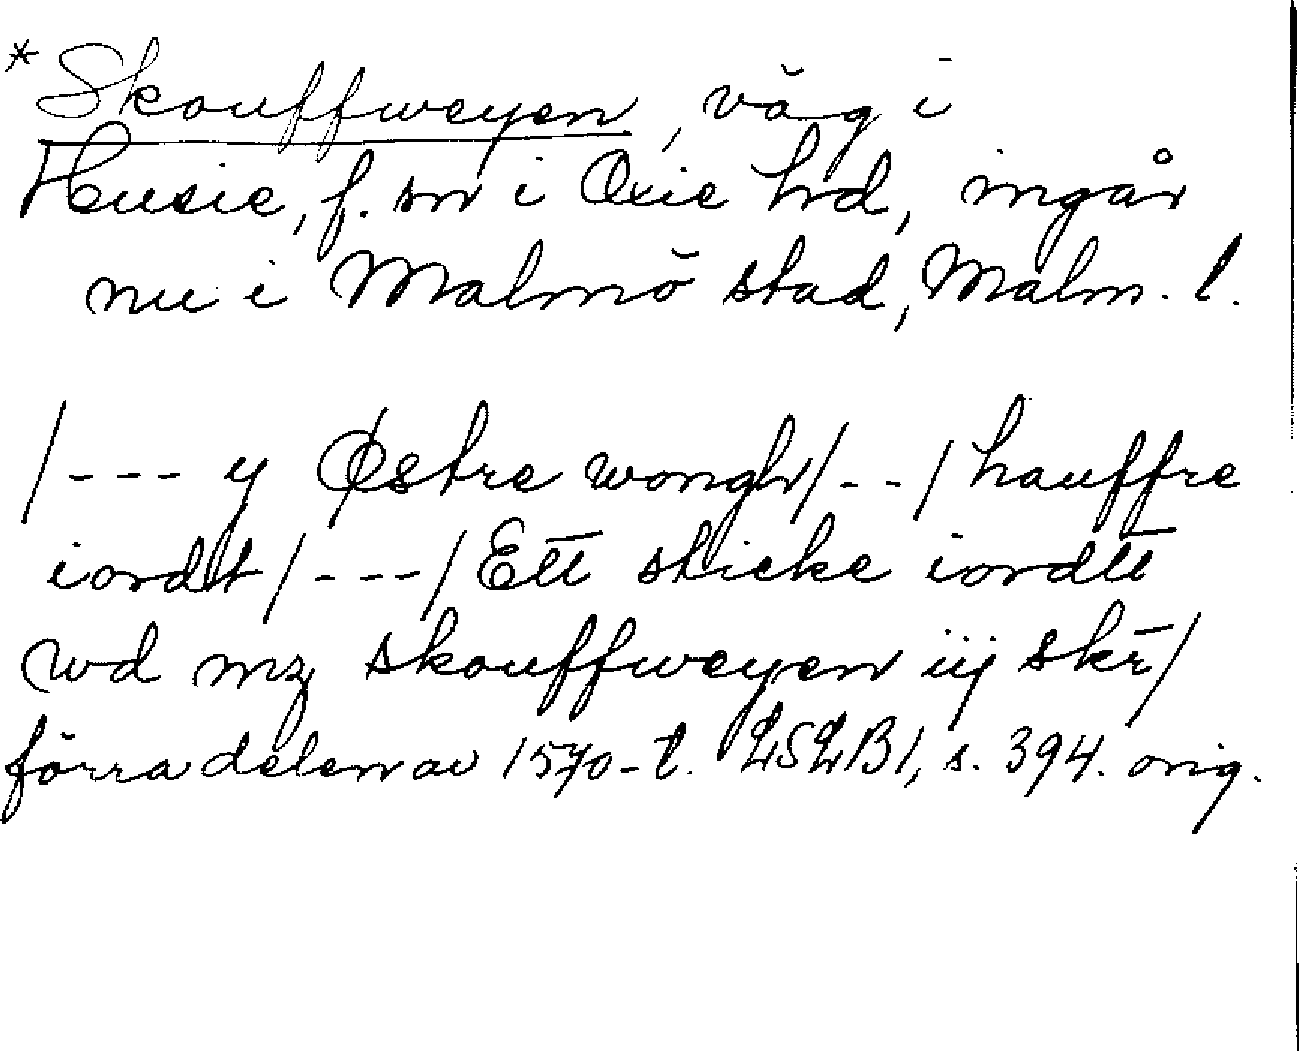 * Skouffweyen, väg i
Husie, f. sn i Oxie hd, ingår
nu i Malmö stad, Malm. l.
/--- y Østre wongh/--/ hauffre
iordt/---/ Ett sticke iordtt
wd mz skouffweyen iij skr/
förra delen av 1570-t. LSLB1, s. 394. orig.